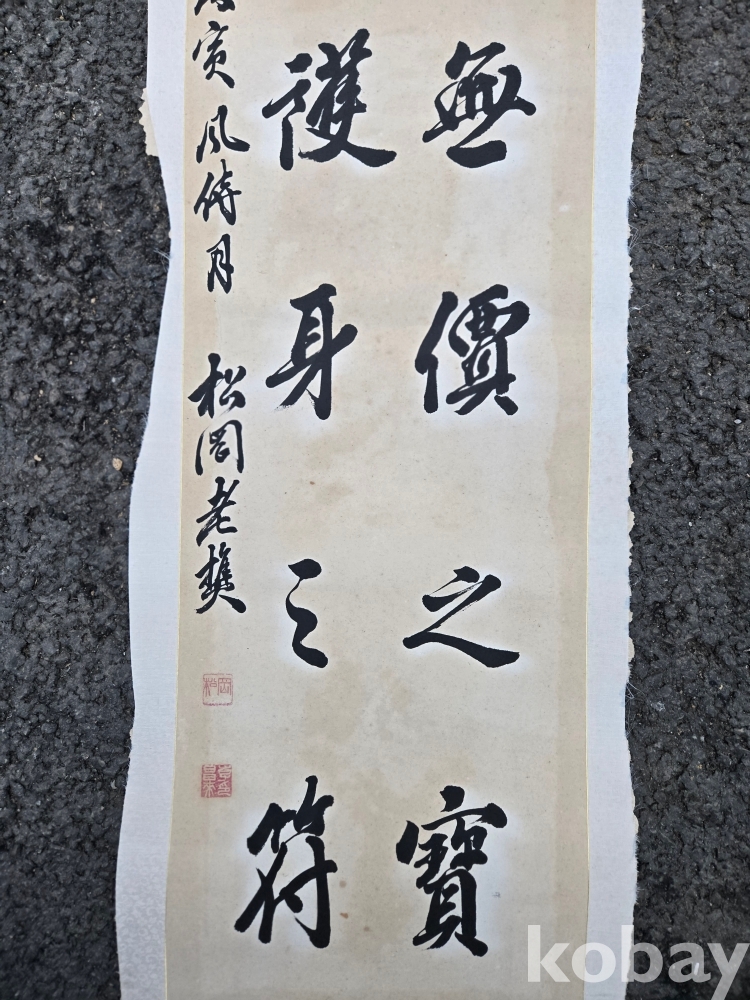 無價之寶
護身之符
寅風待月 松岡老樵
kobay